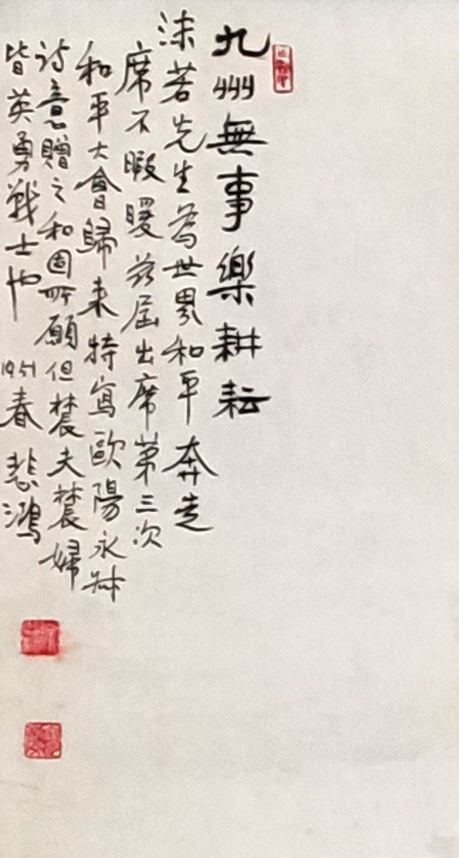 九州無事樂耕耘
沫若先生為世界和平奔走
席不暇暖茲屆出席第三次
和平大會歸来特寫歐陽永叔
诗意贈之和固所願但辳夫辳婦
皆英勇戰士也 1951春 悲鴻